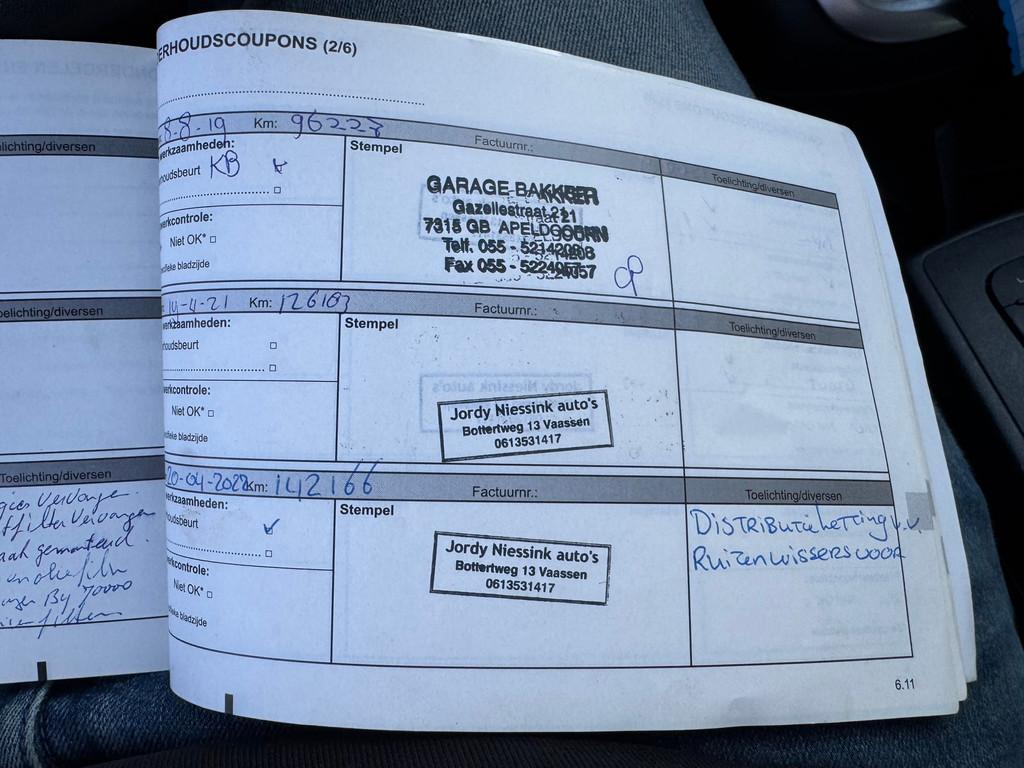 ERHOUDSCOUPONS (2/6)
8-8-19 Km: 96227 Factuurnr.:
erkzaamheden:
houdsbeurt KB
Stempel
Toelichting/diversen
GARAGE BAKKER
Gazellestraat 21
7315 GB APELDOORN
Telf. 055 - 5214208
Fax 055 - 5224057
erkcontrole:
Niet OK*
fieke bladzijde
14-4-21 Km: 126183 Factuurnr.:
erkzaamheden:
houdsbeurt
Stempel
Toelichting/diversen
Jordy Niessink auto's
Bottertweg 13 Vaassen
0613531417
erkcontrole:
Niet OK*
fieke bladzijde
20-04-2022 Km: 142166 Factuurnr.:
erkzaamheden:
houdsbeurt
Stempel
Toelichting/diversen
Jordy Niessink auto's
Bottertweg 13 Vaassen
0613531417
DISTRIBUTIEKETTING V.V.
RUITENWISSERS VOOR
erkcontrole:
Niet OK*
fieke bladzijde
6.11
elichting/diversen
elichting/diversen
Toelichting/diversen
vervangen
filter vervangen
gemonteerd.
By 70000